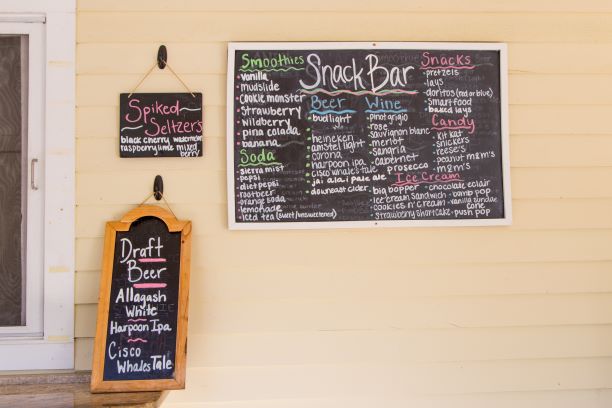 Spiked
Seltzers
black cherry watermelon
raspberry lime mixed
berry
Draft
Beer
Allagash
White
Harpoon Ipa
Cisco
Whales Tale
Snack Bar
Smoothies
vanilla
mudslide
cookie monster
strawberry
wildberry
pina colada
banana
Soda
sierra mist
pepsi
diet pepsi
rootbeer
orange soda
lemonade
Iced tea (sweet/unsweetened)
Beer
bud light
heineken
amstel light
corona
harpoon ipa
cisco whales tale
jai alai pale ale
downeast cider
Wine
pinot grigio
rose
sauvignon blanc
merlot
sangria
cabernet
prosecco
Snacks
pretzels
lays
doritos (red or blue)
smartfood
baked lays
Candy
Kit Kat
snickers
reese's
peanut m&m's
m&m's
Ice Cream
big bopper
chocolate eclair
ice cream sandwich
bomb pop
cookies n' cream
vanilla sundae
cone
strawberry shortcake
push pop